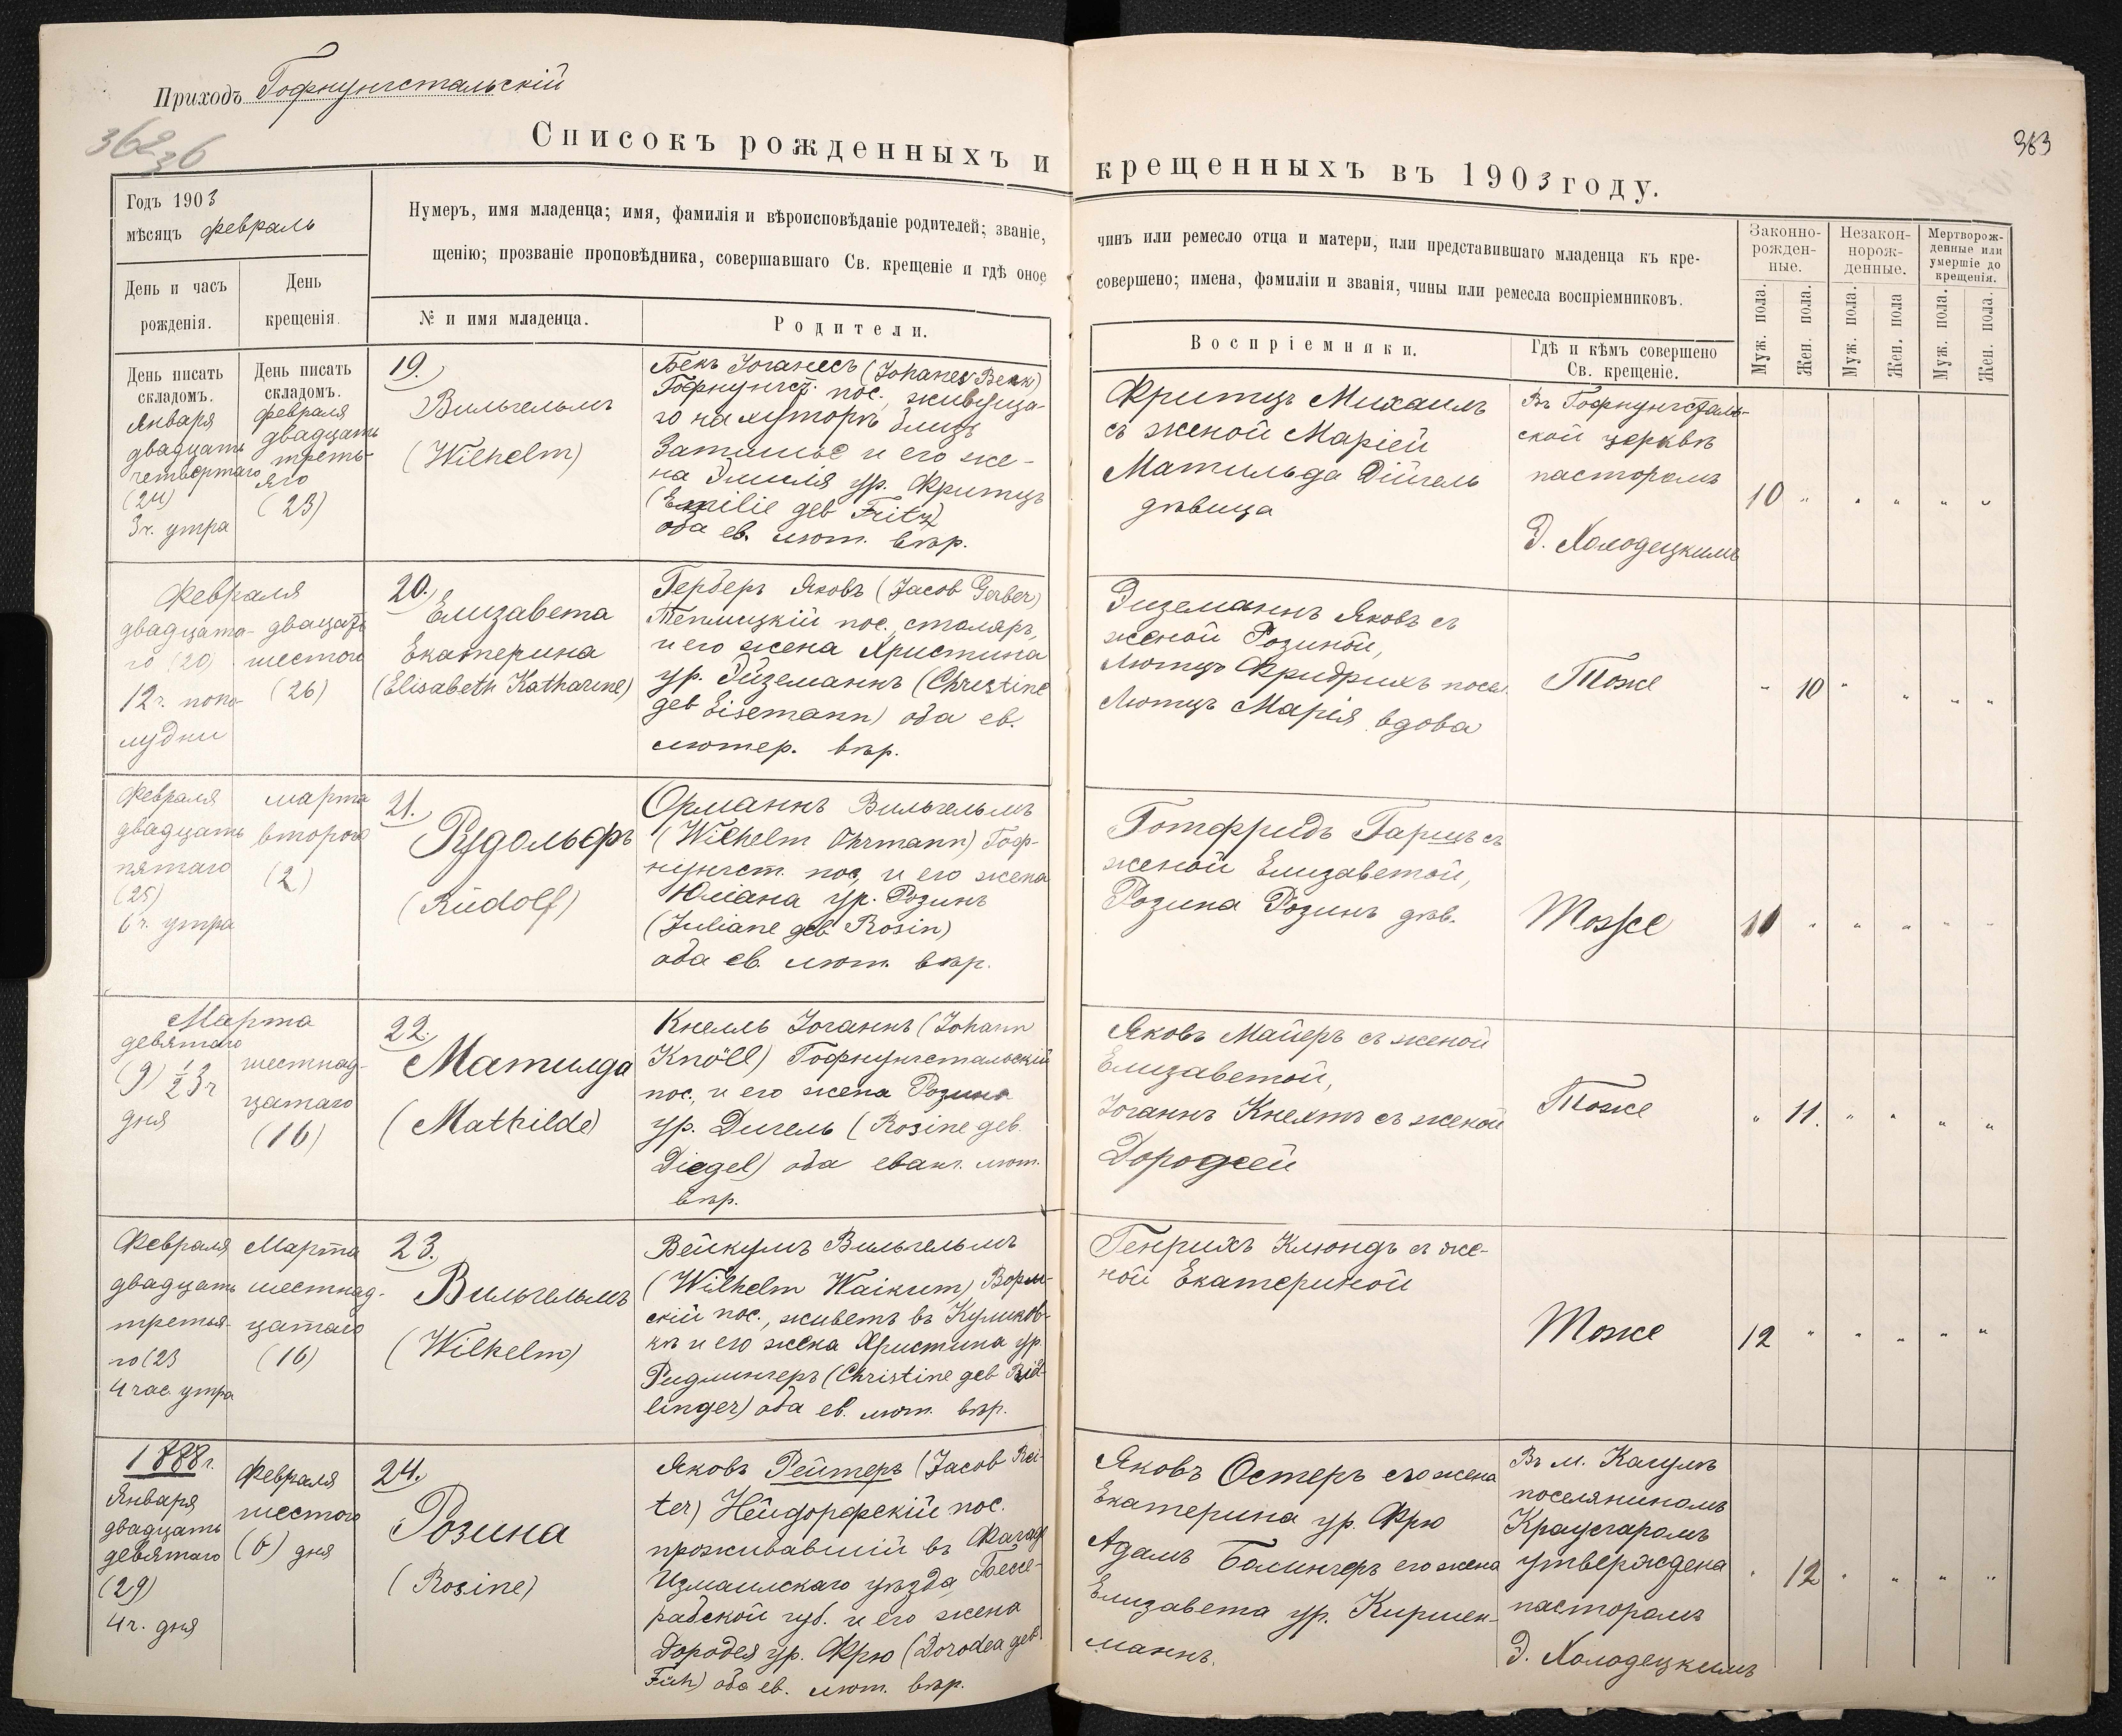 Приходъ Гофнунгстальскій
362
36
383
Списокъ рожденныхъ и крещенныхъ въ 1903 году.
Годъ 1903
мѣсяцъ февраль
Нумеръ, имя младенца; имя, фамилія и вѣроисповѣданіе родителей; званіе, чинъ или ремесло отца и матери, или представившаго младенца къ кре-
щенію; прозваніе проповѣдника, совершавшаго Св. крещеніе и гдѣ оное совершено; имена, фамиліи и званія, чины или ремесла воспріемниковъ.
Законно-
рожден-
ные.
Незакон-
норож-
денные.
Мертворож-
денные или
умершіе до
крещенія.
День и часъ
рожденія.
День
крещенія.
№ и имя младенца.
Родители.
Воспріемники.
Гдѣ и кѣмъ совершено
Св. крещеніе.
Муж. пола.
Жен. пола.
Муж. пола.
Жен. пола
Муж. пола.
Жен. пола.
День писать
складомъ.
Января
двадцать
четвертаго
(24)
3ч. утра
День писать
складомъ.
февраля
двадцать
треть-
яго
(23)
19.
Вильгельмъ
(Wilhelm)
Бекъ Іоганесъ (Johanes Beck)
Гофнунгст. пос., живуща-
го на хуторѣ близъ
Затишье и его же-
на Эмилія ур. Фритцъ
(Emilie geb Fritz)
оба ев. лют. вѣр.
Фритцъ Михаилъ
съ женой Маріей
Матильда Дигель
дѣвица
Въ Гофнунгсталь-
ской церквѣ
пасторомъ
Э. Холодецкимъ
10 " " " " "
Февраля
двадцата-
го (20)
12ч. попо-
лудни
двацать
шестого
(26)
20.
Елизавета
Екатерина
(Elisabeth Katharine)
Герберъ Яковъ (Jacob Gerber)
Теплицкій пос., столяръ,
и его жена Христина
ур. Эйземаннъ (Christine
geb Eisemann) оба ев.
лютер. вѣр.
Эиземаннъ Яковъ съ
женой Розиной,
Лютцъ Фридрихъ посел.
Лютцъ Марія вдова
Тоже
" 10 " " " "
Февраля
двадцать
пятаго
(25)
6ч. утра
марта
второго
(2)
21.
Рудольфъ
(Rudolf)
Орманнъ Вильгельмъ
(Wilhelm Ohrmann) Гоф-
нунгст. пос, и его жена
Юліана ур. Розинъ
(Juliane geb Rosin)
оба ев. лют. вѣр.
Готфридъ Гарицъ съ
женой Елизаветой,
Розина Розинъ дѣв.
Тоже
11 " " " " "
Марта
девятаго
(9) ½ 3ч
дня
шестнад-
цатаго
(16)
22.
Матилда
(Mathilde)
Кнелль Іоганнъ (Johann
Knöll) Гофнунгстальскій
пос., и его жена Розина
ур. Дигель (Rosine geb.
Diegel) оба еванг. лют.
вѣр.
Яковъ Майеръ съ женой
Елизаветой,
Іоганнъ Кнехтъ съ женой
Доротеей
Тоже
" 11. " " " "
Февраля
двадцать
третья-
го (23
4 час. утра
Марта
шестнад-
цатаго
(16)
23.
Вильгельмъ
(Wilhelm)
Вейкумъ Вильгельмъ
(Wilhelm Waikum), Ворм-
скій пос., живетъ въ Куликов-
кѣ и его жена Христина ур.
Ридлингеръ (Christine geb Rid-
linger) оба ев. лют. вѣр.
Генрихъ Клюндъ съ же-
ной Екатериной
Тоже
12 " " " " "
1888г.
Января
двадцать
девятаго
(29)
4ч. дня
Февраля
шестого
(6) дня
24.
Розина
(Rosine)
Яковъ Рейтеръ (Jacob Rei-
ter) Нейдорфскій пос.
проживавшій въ
Измаилскаго уѣзда, Бесса-
рабской губ. и его жена
Доротея ур. Фрю (Dorodea geb
Früh) оба ев. лют. вѣр.
Яковъ Остеръ его жена
Екатерина ур. Фрю
Адамъ Балингеръ его жена
Елизавета ур. Киршен-
маннъ.
Въ м. Кагулѣ
поселяниномъ
Краусгаромъ
утверждена
пасторомъ
Э. Холодецкимъ
" 12 " " " "